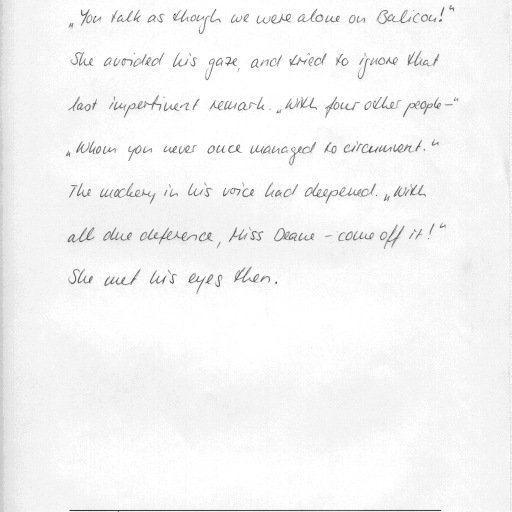 „You talk as though we were alone on Balicou!“
She avoided his gaze, and tried to ignore that
last impertinent remark. „With four other people–“
„Whom you never once managed to circumvent.“
The mockery in his voice had deepened. „With
all due deference, Miss Deane – come off it!“
She met his eyes then.